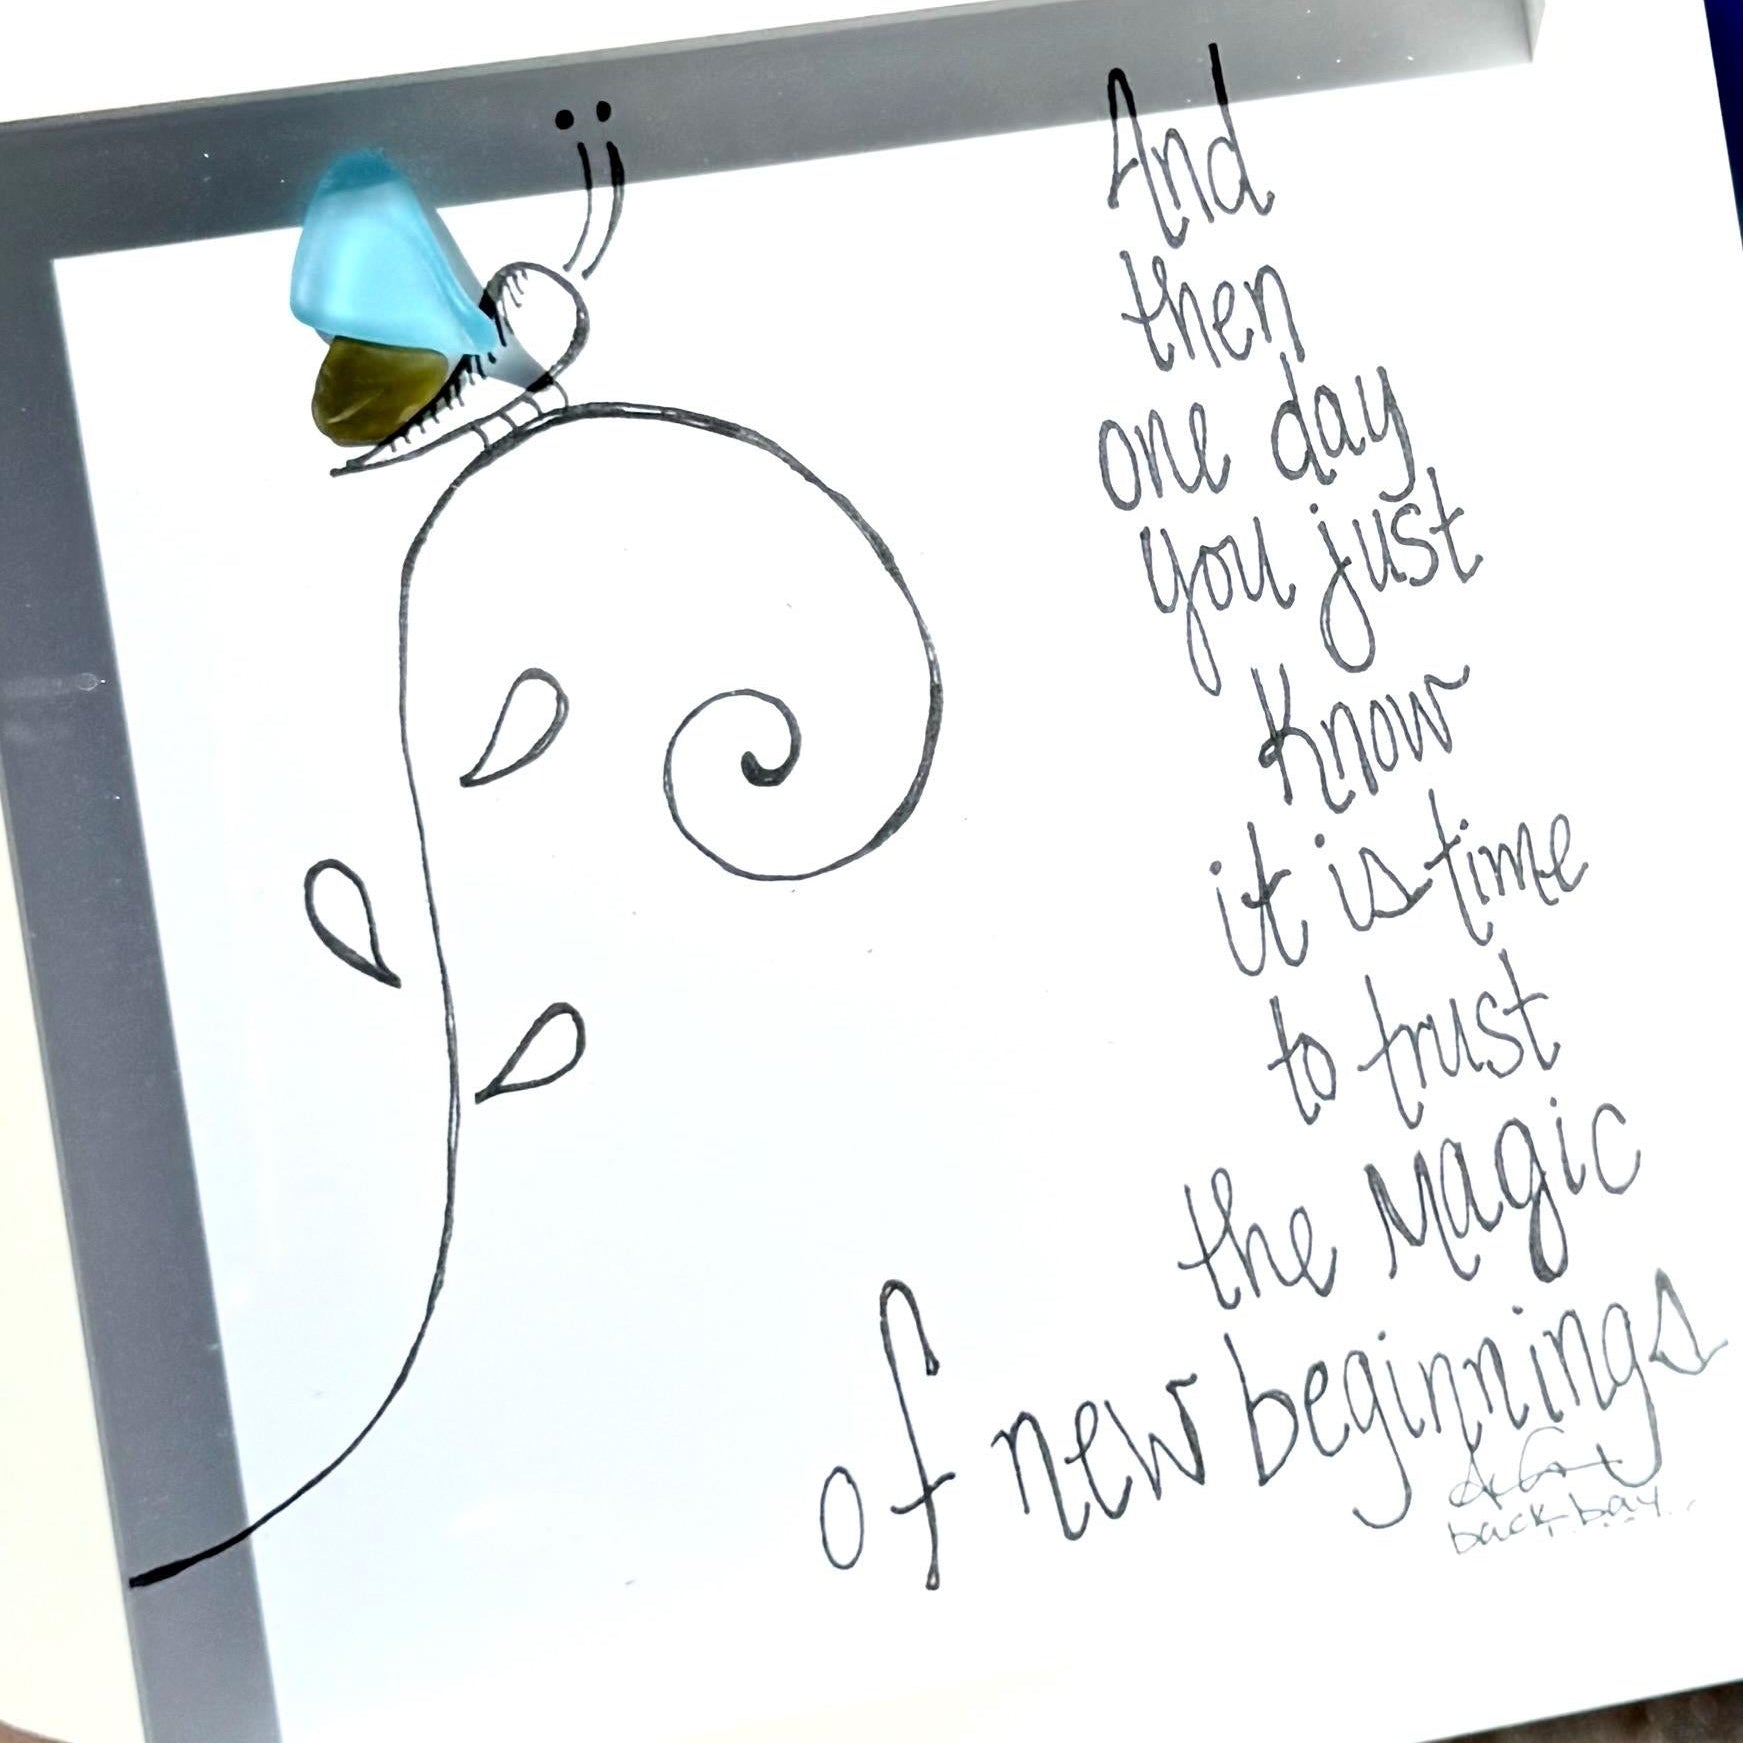 And
then
one day
you just
Know
it is time
to trust
the Magic
of new beginnings
back bay